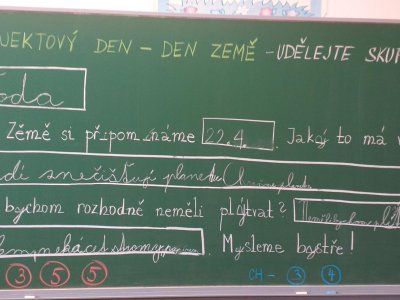 JEKTOVÝ DEN - DEN ZEMĚ - UDĚLEJTE SKUP
oda
Země si připomínáme 22.4. . Jaký to má v
di snečišťují planetu
bychom rozhodně neměli plýtvat?
. Mysleme bystře!
3 5 5 CH - 3 4